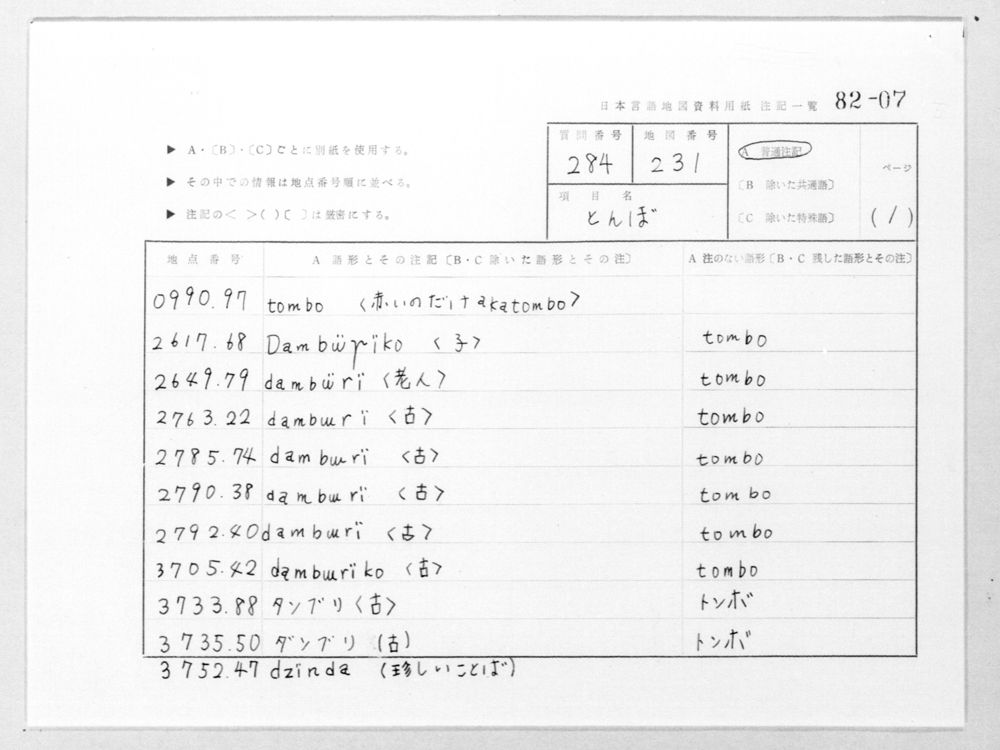 日本言語地図資料用紙 注記一覧 82-07
▶ A・〔B〕・〔C〕ごとに別紙を使用する。
▶ その中での情報は地点番号順に並べる。
▶ 注記の< >( )〔 〕は厳密にする。
質問番号 地図番号 A 普通注記 ページ
284 231
〔B 除いた共通語〕
項目名
とんぼ
〔C 除いた特殊語〕 (1)
地点番号 A 語形とその注記〔B・C 除いた語形とその注〕 A 注のない語形〔B・C 残した語形とその注〕
0990.97 tombo 〈赤いのだけakatombo〉
2617.68 Dambüṛïko 〈子〉 tombo
2649.79 dambürï 〈老人〉 tombo
2763.22 dambɯrï 〈古〉 tombo
2785.74 dambɯrï 〈古〉 tombo
2790.38 dambɯrï 〈古〉 tombo
2792.40 dambɯrï 〈古〉 tombo
3705.42 dambɯrïko 〈古〉 tombo
3733.88 タンブリ〈古〉 トンボ
3735.50 ダンブリ (古) トンボ
3752.47 dzinda (珍しいことば)